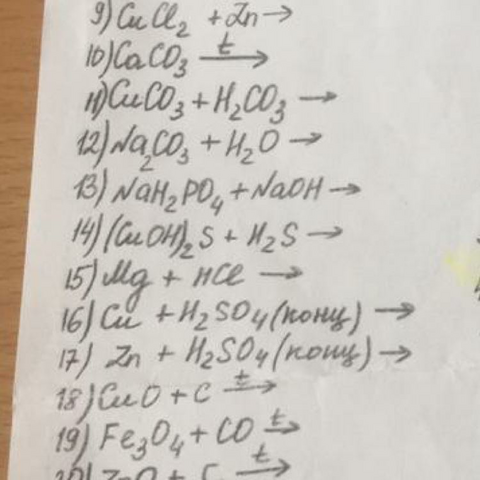 9) CuCl₂ + Zn →
10) CaCO₃ t→
11) CuCO₃ + H₂CO₃ →
12) Na₂CO₃ + H₂O →
13) NaH₂PO₄ + NaOH →
14) (CuOH)₂S + H₂S →
15) Mg + HCl →
16) Cu + H₂SO₄ (конц) →
17) Zn + H₂SO₄ (конц) →
18) CuO + C t→
19) Fe₃O₄ + CO t→
20) ZnO + C t→